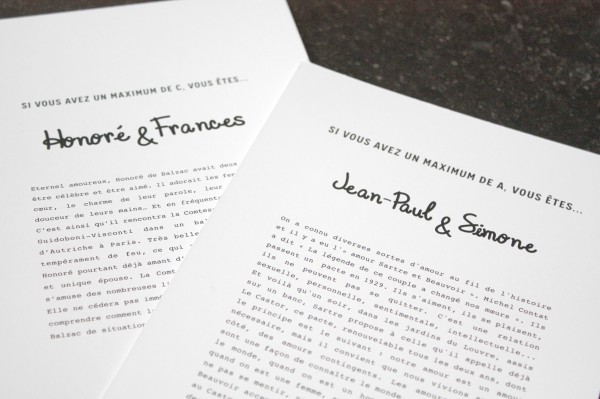 SI VOUS AVEZ UN MAXIMUM DE C, VOUS ÊTES...
Honoré & Frances
Eternel amoureux, Honoré de Balzac avait deux
être célèbre et être aimé. Il adorait les fem
cœur, le charme de leur parole, leur
douceur de leurs mains… Et en fréquent
C'est ainsi qu'il rencontra la Comtes
Guidoboni-Visconti dans un bal
d'Autriche à Paris. Très belle
tempérament de feu, ce qui
Honoré pourtant déjà amant d'
et unique épouse. La Comt
s'amuse des nombreuses l
Elle ne cédera pas immé
comprendre comment l
Balzac de situation
SI VOUS AVEZ UN MAXIMUM DE A, VOUS ÊTES...
Jean-Paul & Simone
On a connu diverses sortes d'amour au fil de l'histoire
et il y a eu l'« amour Sartre et Beauvoir ». Michel Contat
a dit « La légende de ce couple a changé nos mœurs ». Ils
passent un pacte en 1929. Ils s'aiment, ils se plaisent,
ils ne peuvent pas se quitter. C'est une relation
sexuelle, personnelle, sentimentale, intellectuelle...
Et voilà qu'un soir, dans les jardins du Louvre, assis
sur un banc, Sartre propose à celle qu'il appelle déjà
Le Castor, ce pacte, renouvelable tous les deux ans, dont
le principe est le suivant : notre amour est un amour
nécessaire, mais il convient que nous vivions aussi, à
côté, des amours contingents. Les amours
sont une façon de connaître le monde
le monde, quand on est un homme
quand on est une femme,
ne pas se mentir,
Beauvoir acce
au Castor
de